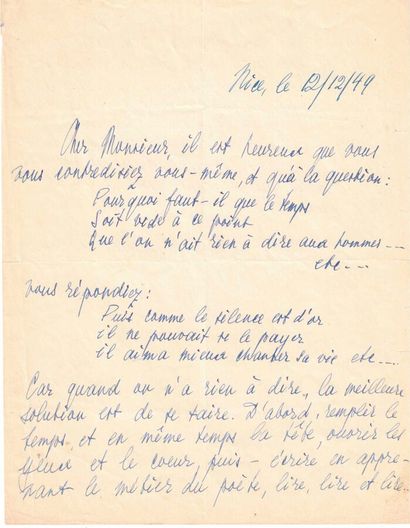 Nice, le 12/12/49
Cher Monsieur, il est heureux que vous
vous contredisiez vous-même, et qu'à la question:
Pourquoi faut-il que le temps
Soit vide à ce point
Que l'on n'ait rien à dire aux hommes---
etc---
vous répondiez:
Puis comme le silence est d'or
il ne pouvait se le payer
il aima mieux chanter sa vie etc---
Car quand on n'a rien à dire, la meilleure
solution est de se taire. D'abord, remplir le
temps et en même temps la tête, ouvrir les
yeux et le coeur, puis - écrire en appre-
nant le métier du poète, lire, lire et lire--